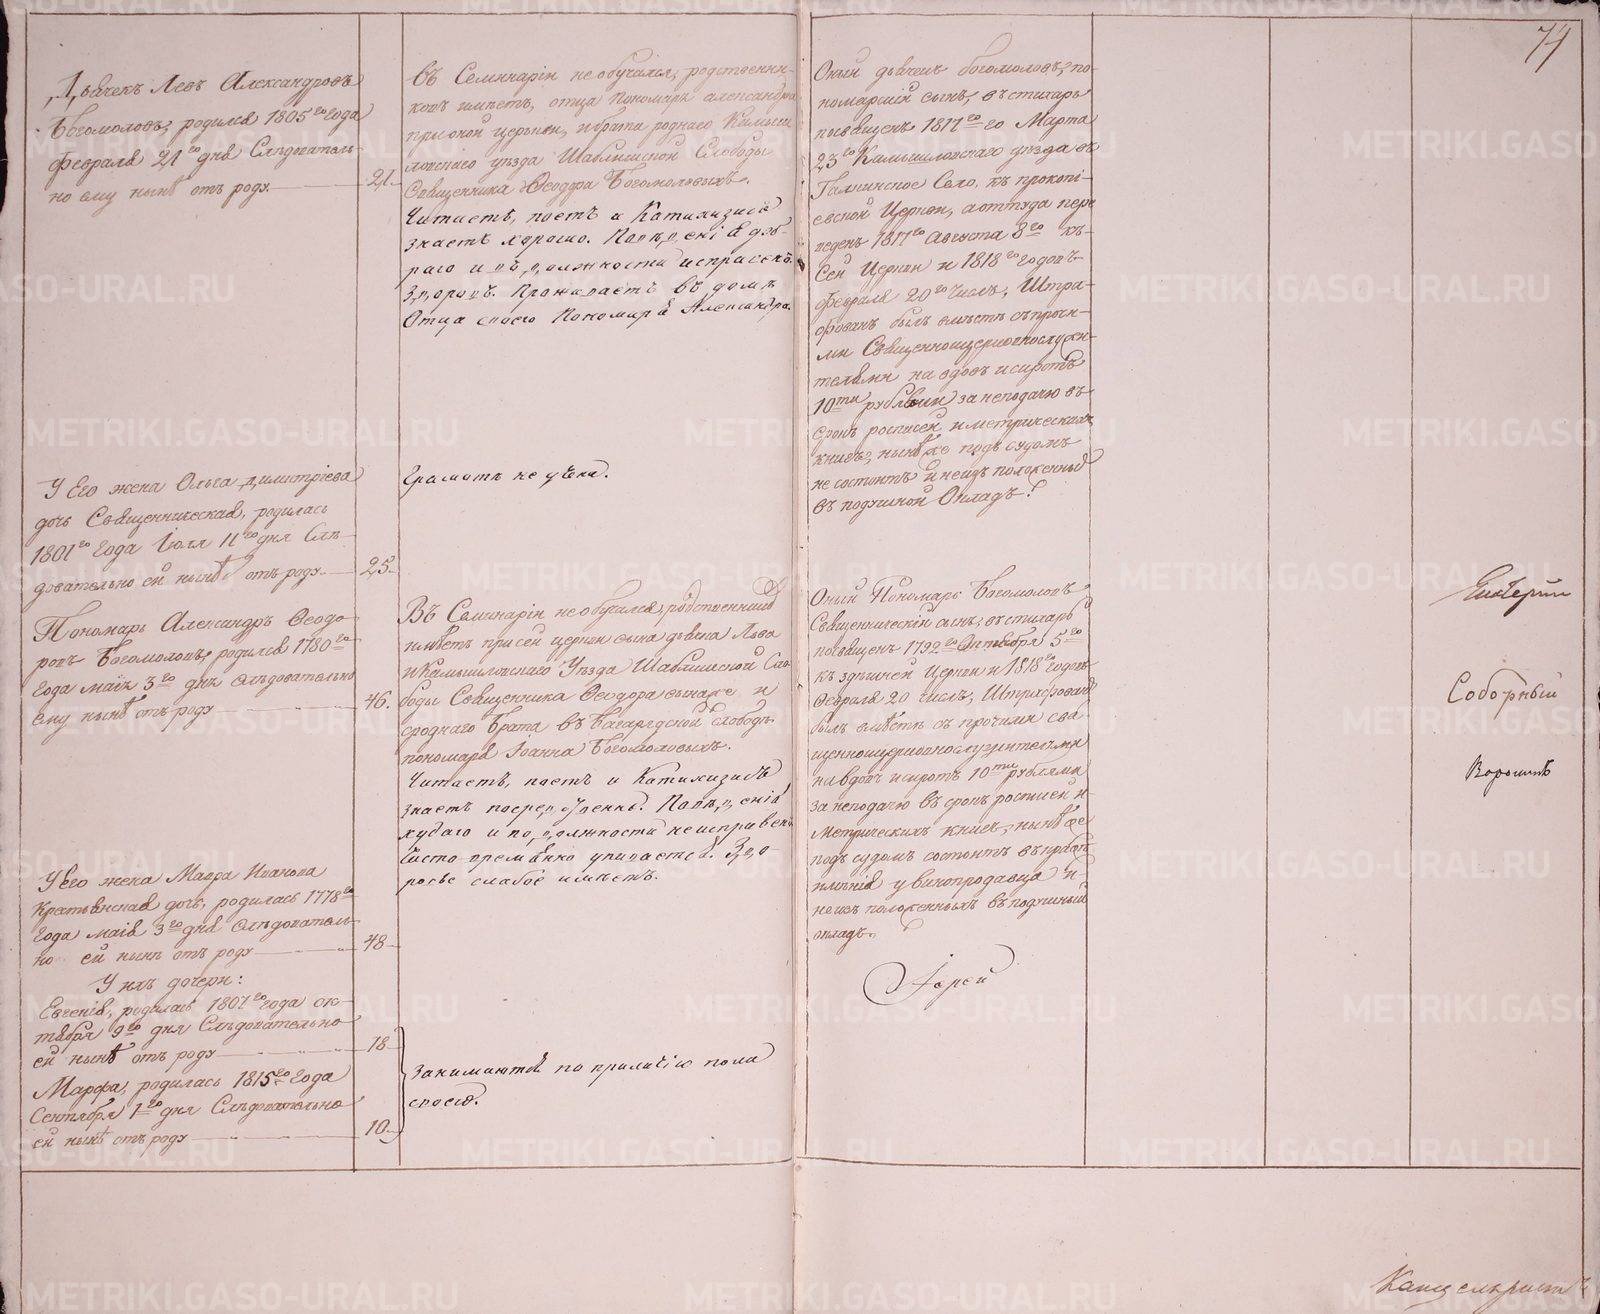 74
Дьячекъ Левъ Александровъ
Богомоловъ, родился 1805го года
февраля 21го дня Слѣдователь-
но ему нынѣ отъ роду
21.
Въ Семинаріи не обучался, родственни-
ковъ имѣетъ, отца Пономаря Александра
при оной церькви, и брата роднаго Камыш
ловскаго уѣзда Шаблишской Слободы
Священника Ѳеодора Богомоловыхъ.
Читаетъ, поетъ и Катихизисъ
знаетъ хорошо. Поведенія доб-
раго и въ должности исправенъ.
Здоровъ. Проживаетъ въ домѣ
Отца своего Пономаря Александра.
Оный дьячекъ Богомоловъ, по-
номарскій сынъ, въ стихарь
посвященъ 1817го года Марта
23го Камышловскаго уѣзда въ
село, къ прокопі-
евской Церкви, а оттуда пере
веденъ 1817го Августа 8го къ
Сей Церкви и 1818го годовъ
февраля 20го числъ, Штра-
фованъ былъ вмѣстѣ съ прочи-
ми Священноцерковнослужи-
телями на вдовъ и сиротъ
10ти рублями за неподачю въ
срокъ росписей и метрическихъ
книгъ, нынѣ же подъ судомъ
не состоитъ и не изъ положенныхъ
въ подушной Окладъ.
У Его жена Ольга Димитріева
дочь Священническая, родилась
1801го года Іюля 11го дня Слѣ-
довательно ей нынѣ отъ роду
25.
Грамотѣ не учена.
Пономарь Александръ Ѳеодо-
ровъ Богомоловъ, родился 1780го
года маія 3го дня Слѣдовательно
ему нынѣ отъ роду
46.
Въ Семинаріи не обучался, родственниковъ
имѣетъ при сей церкви сына дьячка Льва
и Камышловскаго Уѣзда Шаблишской Сло
боды Священника Ѳеодора сына же и
сроднаго брата въ Багарядской слободѣ
пономаря Іоанна Богомоловыхъ.
Читаетъ, поетъ и Катихизисъ
знаетъ посредственно. Поведенія
худаго и по должности неисправенъ
Часто временно упивается. Здо-
ровье слабое имѣетъ.
Оный Пономарь Богомоловъ
Священническій сынъ, въ стихарь
посвященъ 1792го Октября 5го
къ здѣшней Церкви и 1818го годовъ
Февраля 20 числъ, Штрафованъ
былъ вмѣстѣ съ прочими свя
щенноцерковнослужителями
на вдовъ и сиротъ 10ти рублями
за неподачю въ срокъ росписей и
Метрическихъ книгъ, нынѣ же
подъ судомъ состоитъ въ
у винопродавца и
не изъ положенныхъ въ подушный
окладъ.
У его жена Мавра Иванова
Крестьянская дочь, родилась 1778го
года маія 3го дня Слѣдователь-
но ей нынѣ отъ роду
48
У нхъ дочери:
Евгенія, родилась 1807го года ок-
тября 9го дня Слѣдовательно
ей нынѣ отъ роду
18
Марфа, родилась 1815го года
Сентября 1го дня Слѣдовательно
ей нынѣ отъ роду
10
Занимаются по приличію пола
своего.
Іерей
Соборный
Канцеляристъ
METRIKI.GASO-URAL.RU